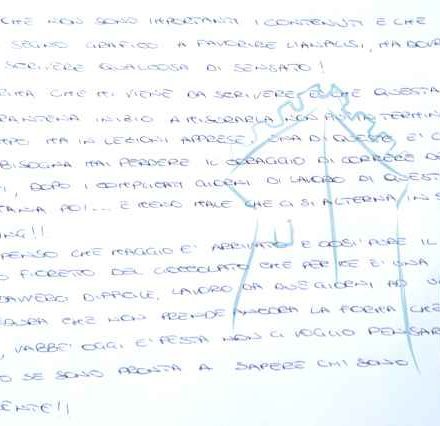 CHE NON SONO IMPORTANTI I CONTENUTI E CHE
SEGNO GRAFICO A FAVORIRE L'ANALISI, MA DOVR
SCRIVERE QUALCOSA DI SENSATO!
CHE MI VIENE DA SCRIVERE È CHE QUESTA
RANTENA INIZIO A MISURARLA NON IN TERMIN
MA IN LEZIONI APPRESE, UNA DI QUESTE E' C
BISOGNA MAI PERDERE IL CORAGGIO DI CORRERE D
I, DOPO I COMPLICATI GIORNI DI LAVORO DI QUEST
TANA POI... E MENO MALE CHE CI SI ALTERNA IN S
ING!!
PENSO CHE MAGGIO E' ARRIVATO E COSI' PURE IL
O FIORETTO DEL CIOCCOLATO CHE PER ME E' UNA
DAVVERO DIFFICILE, LAVORO DA DUE GIORNI AD U
CHE NON PRENDE ANCORA LA FORMA CHE
, VABBE' OGGI E' FESTA NON CI VOGLIO PENSAR
O SE SONO PRONTA A SAPERE CHI SONO
ENTE!!